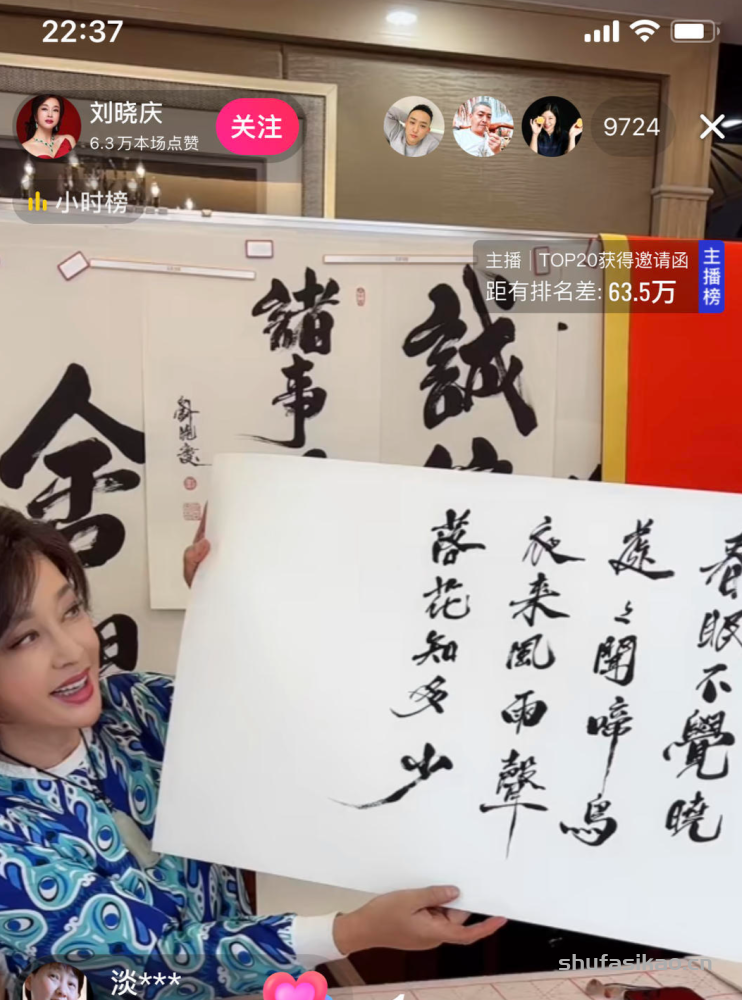 22:37
刘晓庆
6.3万本场点赞
关注
9724
小时榜
主播 TOP20获得邀请函
距有排名差: 63.5万
主播榜
誠
諸事
劉曉慶
舍
春眠不覺曉
處々聞啼鳥
夜来風雨聲
落花知多少
淡***
shufasikao.cn